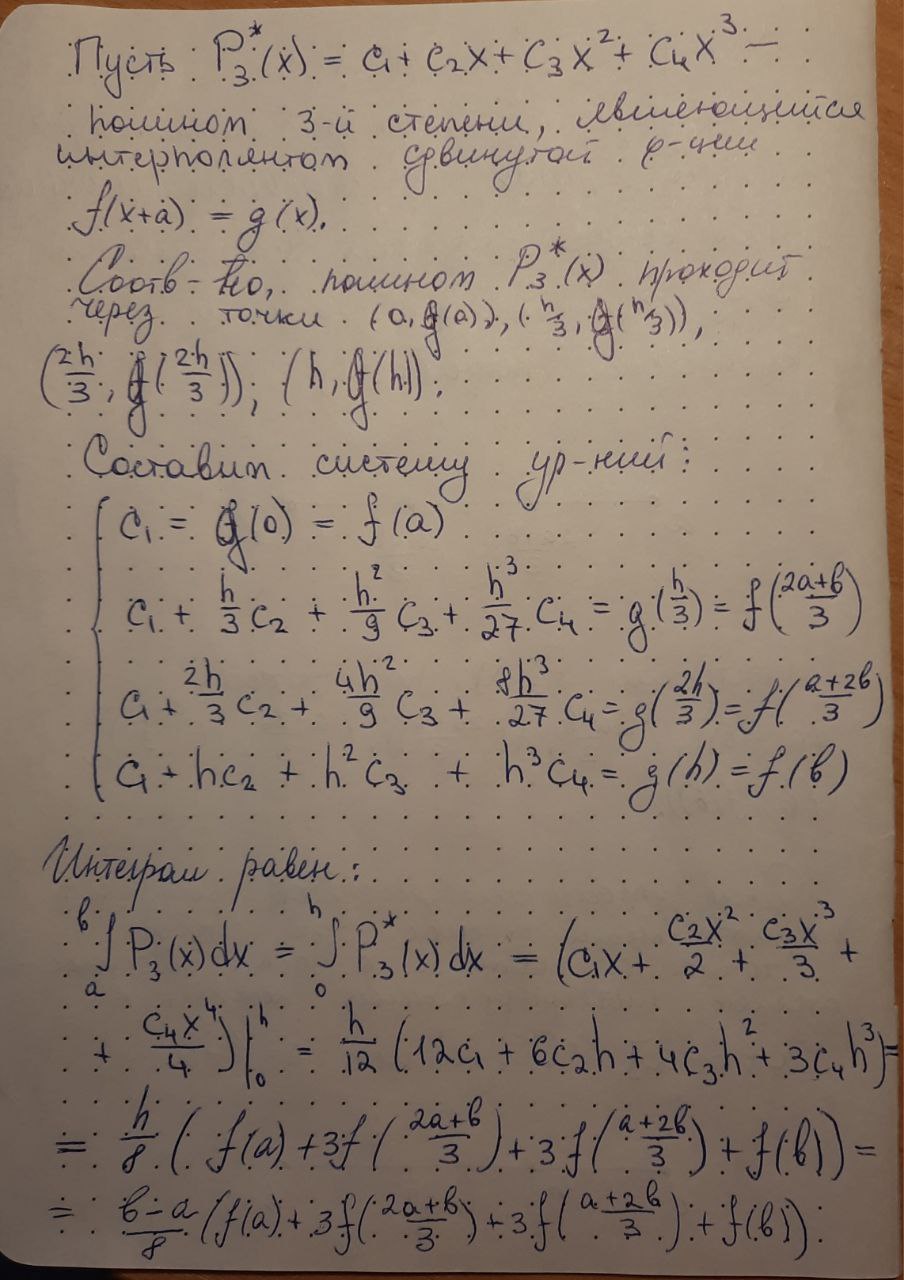 Пусть P₃*(x) = c₁ + c₂x + c₃x² + c₄x³ —
полином 3-й степени, являющийся
интерполянтом сдвинутой ф-ции
f(x+a) = g(x).
Соотв-но, полином P₃*(x) проходит
через точки (0, g(0)), (h/3, g(h/3)),
(2h/3, g(2h/3)), (h, g(h)).
Составим систему ур-ний:
c₁ = g(0) = f(a)
c₁ + h/3 c₂ + h²/9 c₃ + h³/27 c₄ = g(h/3) = f((2a+b)/3)
c₁ + 2h/3 c₂ + 4h²/9 c₃ + 8h³/27 c₄ = g(2h/3) = f((a+2b)/3)
c₁ + hc₂ + h²c₃ + h³c₄ = g(h) = f(b)
Интеграл равен:
∫ₐᵇ P₃(x)dx = ∫₀ʰ P₃*(x)dx = (c₁x + c₂x²/2 + c₃x³/3 +
+ c₄x⁴/4)|₀ʰ = h/12 (12c₁ + 6c₂h + 4c₃h² + 3c₄h³) =
= h/8 (f(a) + 3f((2a+b)/3) + 3f((a+2b)/3) + f(b)) =
= (b−a)/8 (f(a) + 3f((2a+b)/3) + 3f((a+2b)/3) + f(b)).